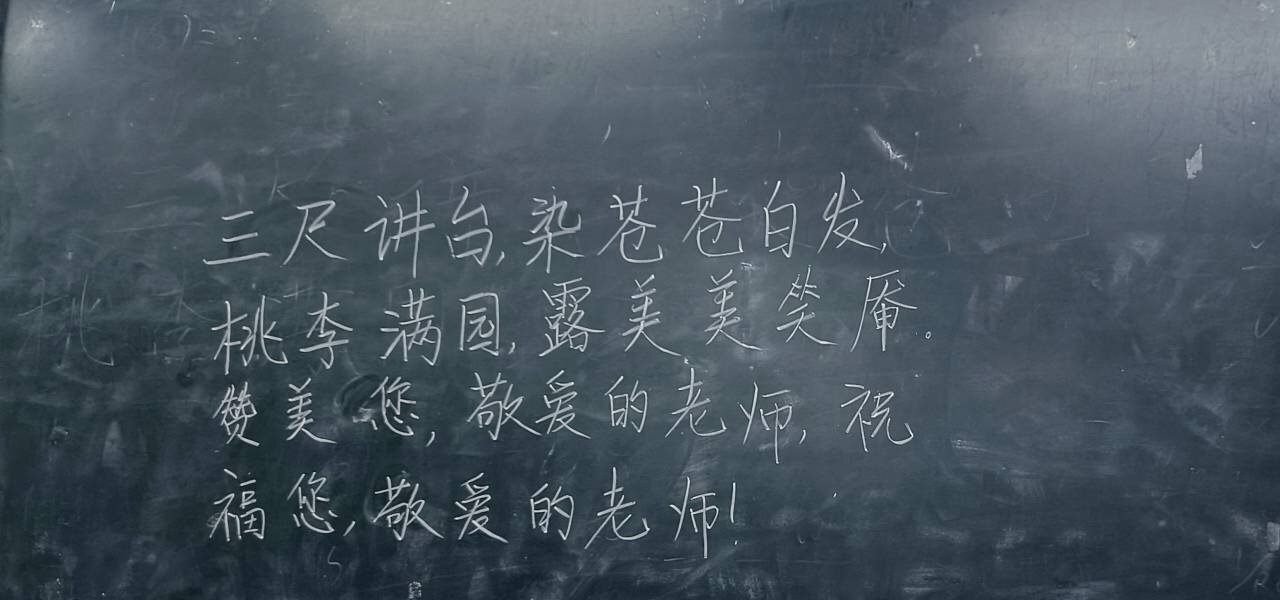 三尺讲台,染苍苍白发,
桃李满园,露美美笑餍。
赞美您,敬爱的老师,祝
福您,敬爱的老师!